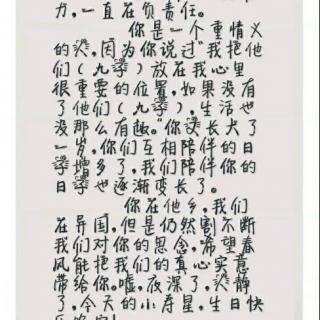 力,一直在负责任。
你是一个重情义
的人,因为你说过"我把他
们(九学)放在我心里
很重要的位置,如果没有
了他们(九学),生活也
没那么有趣。"你又长大了
一岁,你们互相陪伴的日
子增多了,我们陪伴你的
日子也逐渐变长了。
你在他乡,我们
在异国,但是仍然割不断
我们对你的思念,希望春
风能把我们的真心实意
带给你。嘘,夜深了,人静
了,今天的小寿星,生日快